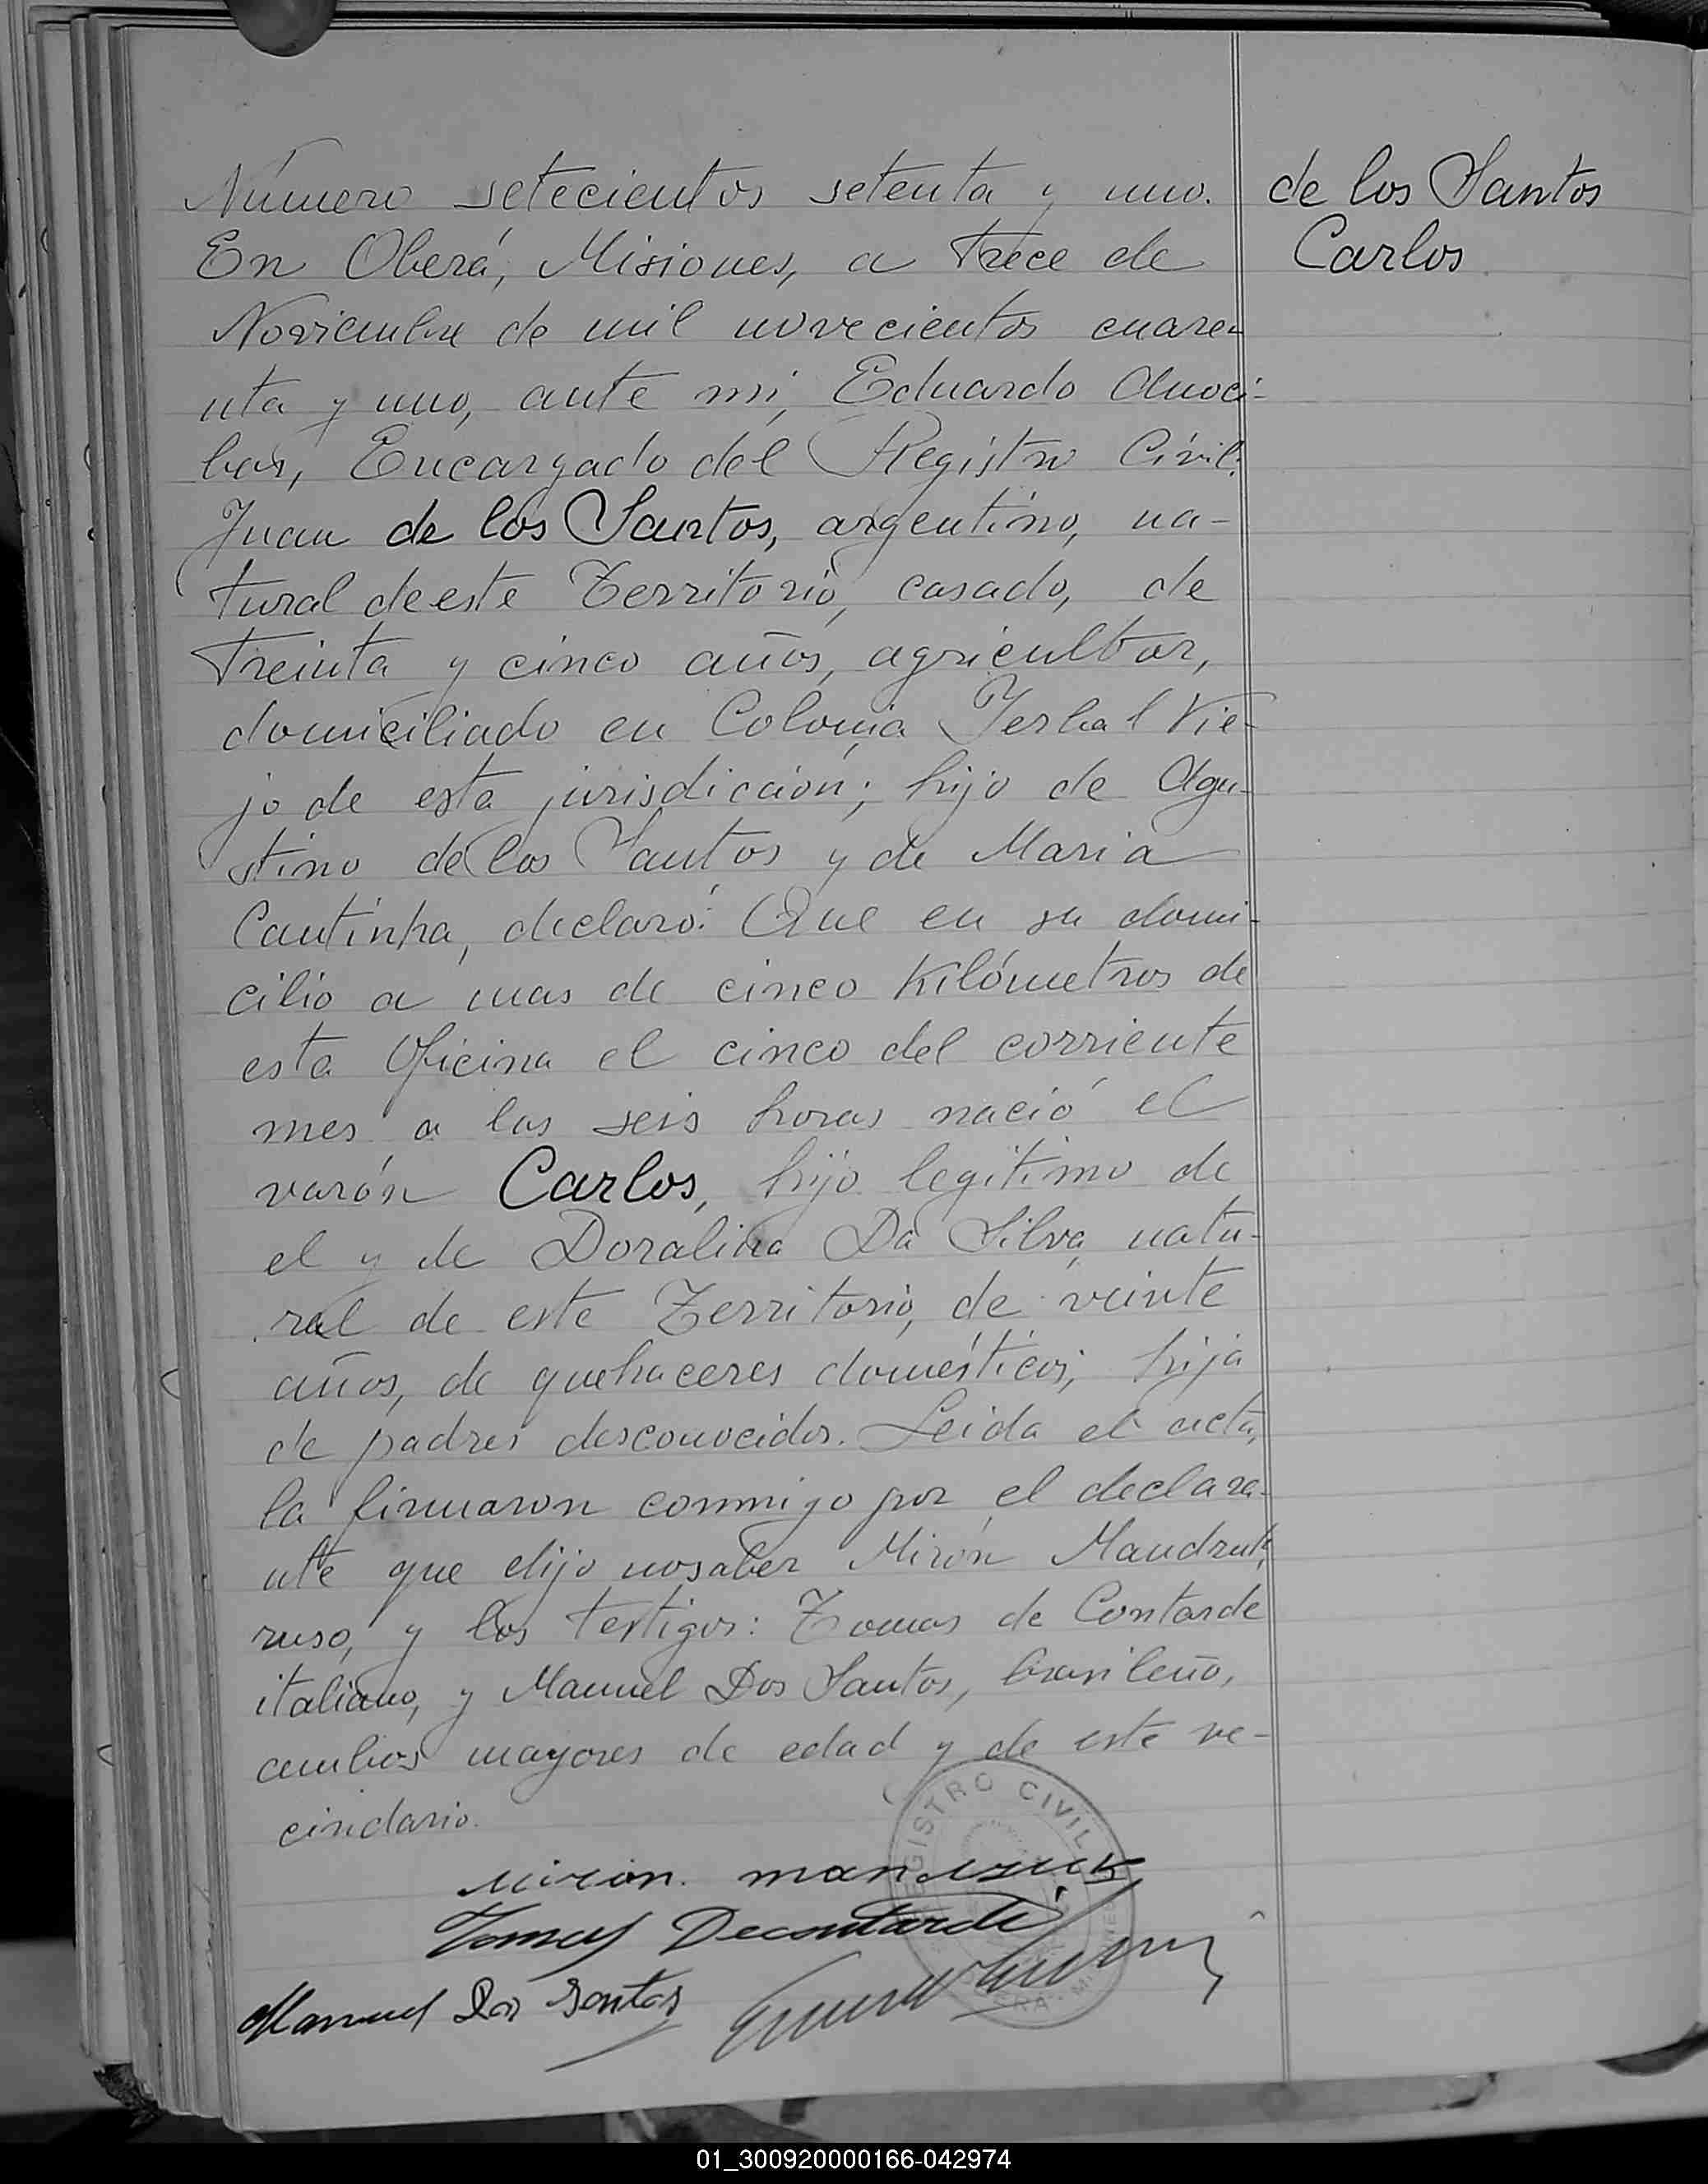 Número setecientos setenta y uno.
de los Santos
Carlos
En Oberá, Misiones, a trece de
Noviembre de mil novecientos cuare-
nta y uno, ante mi, Eduardo Anoci-
bar, Encargado del Registro Civil:
Juan de los Santos, argentino, na-
tural de este Territorio, casado, de
treinta y cinco años, agricultor,
domiciliado en Colonia Yerbal Vie-
jo de esta jurisdicción; hijo de Agu-
stino de los Santos y de Maria
Cantinha, declaró: Que en su domi-
cilio a mas de cinco Kilómetros de
esta Oficina el cinco del corriente
mes a las seis horas nació el
varón Carlos, hijo legitimo de
el y de Doralina Da Silva, natu-
ral de este Territorio, de veinte
años, de quehaceres domésticos, hija
de padres desconocidos. Leida el acta,
la firmaron conmigo por el declara-
nte que dijo no saber Mirón Mandruk,
ruso, y los testigos: Tomas de Contarde
italiano, y Manuel Dos Santos, brasileño,
ambos mayores de edad y de este ve-
cindario.
REGISTRO CIVIL
Miron. mandruk
Tomas Decontardi
Manuel Dos Santos
01_300920000166-042974